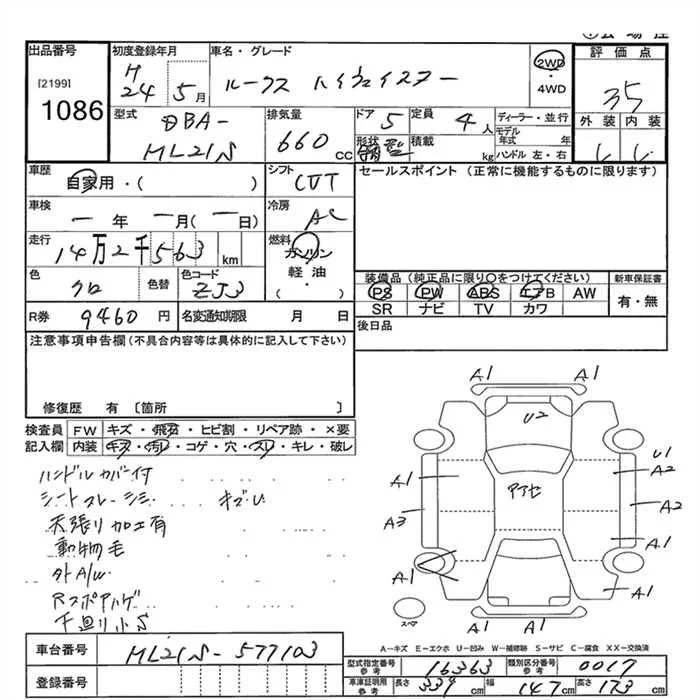 出品番号 初度登録年月 車名・グレード 評価点
[2199] H 2WD
1086 24 5月 ルークス ハイウェイスター ・4WD 35
型式 排気量 ドア 定員 ディーラー・並行 外装 内装
DBA- 660 CC 5 4人 モデル年式 年
ML21S 形状 積載 kg ハンドル 左・右
車歴 シフト セールスポイント(正常に機能するものに限ります)
自家用・( ) CVT
車検 冷房
ー年 ー月(ー日) AC
走行 燃料
14万2千563 km ガソリン
色 色替 色コード 軽油
クロ ZJ3 ・( )
装備品(純正品に限り○をつけてください) 新車保証書
PS PW ABS エアB AW 有・無
SR ナビ TV カワ
R券 9460円 名変通知期限 月 日 後日品
注意事項申告欄(不具合内容等は具体的に記入して下さい)
修復歴 有〔箇所 〕
検査員 FW キズ・飛石・ヒビ割・リペア跡・×要
記入欄 内装 キズ・汚レ・コゲ・穴・スレ・キレ・破レ
ハンドルカバー付
キズU
天張り加工有
動物毛
外A/W
下廻り小S
A1 A1
U2
A1 U1
A2
アナセ
A3 A2
A1 A1
スペア A1
A1 A1
A-キズ E-エクボ U-凹み W-補修跡 S-サビ C-腐食 XX-交換済
車台番号 ML21S-577103
登録番号
型式指定番号 参考 16363 類別区分番号 参考 0017
車庫証明用 参考 長さ 339cm 幅 147cm 高さ 173cm